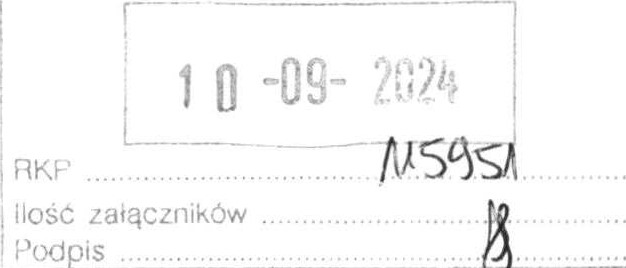 10 -09- 2024
RKP 115951
Ilość załączników
Podpis